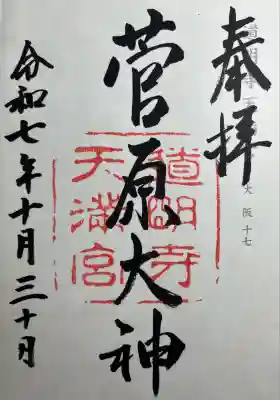 奉拝
道明寺天満宮
大阪十七
菅原大神
道明寺
天満宮
令和七年十月三十日